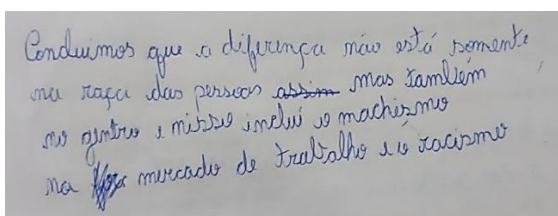 Concluimos que a diferença não está somente
na raça das pessoas assim mas também
no gentro e nisso incluí o machismo
na mercado de trabalho e o racismo